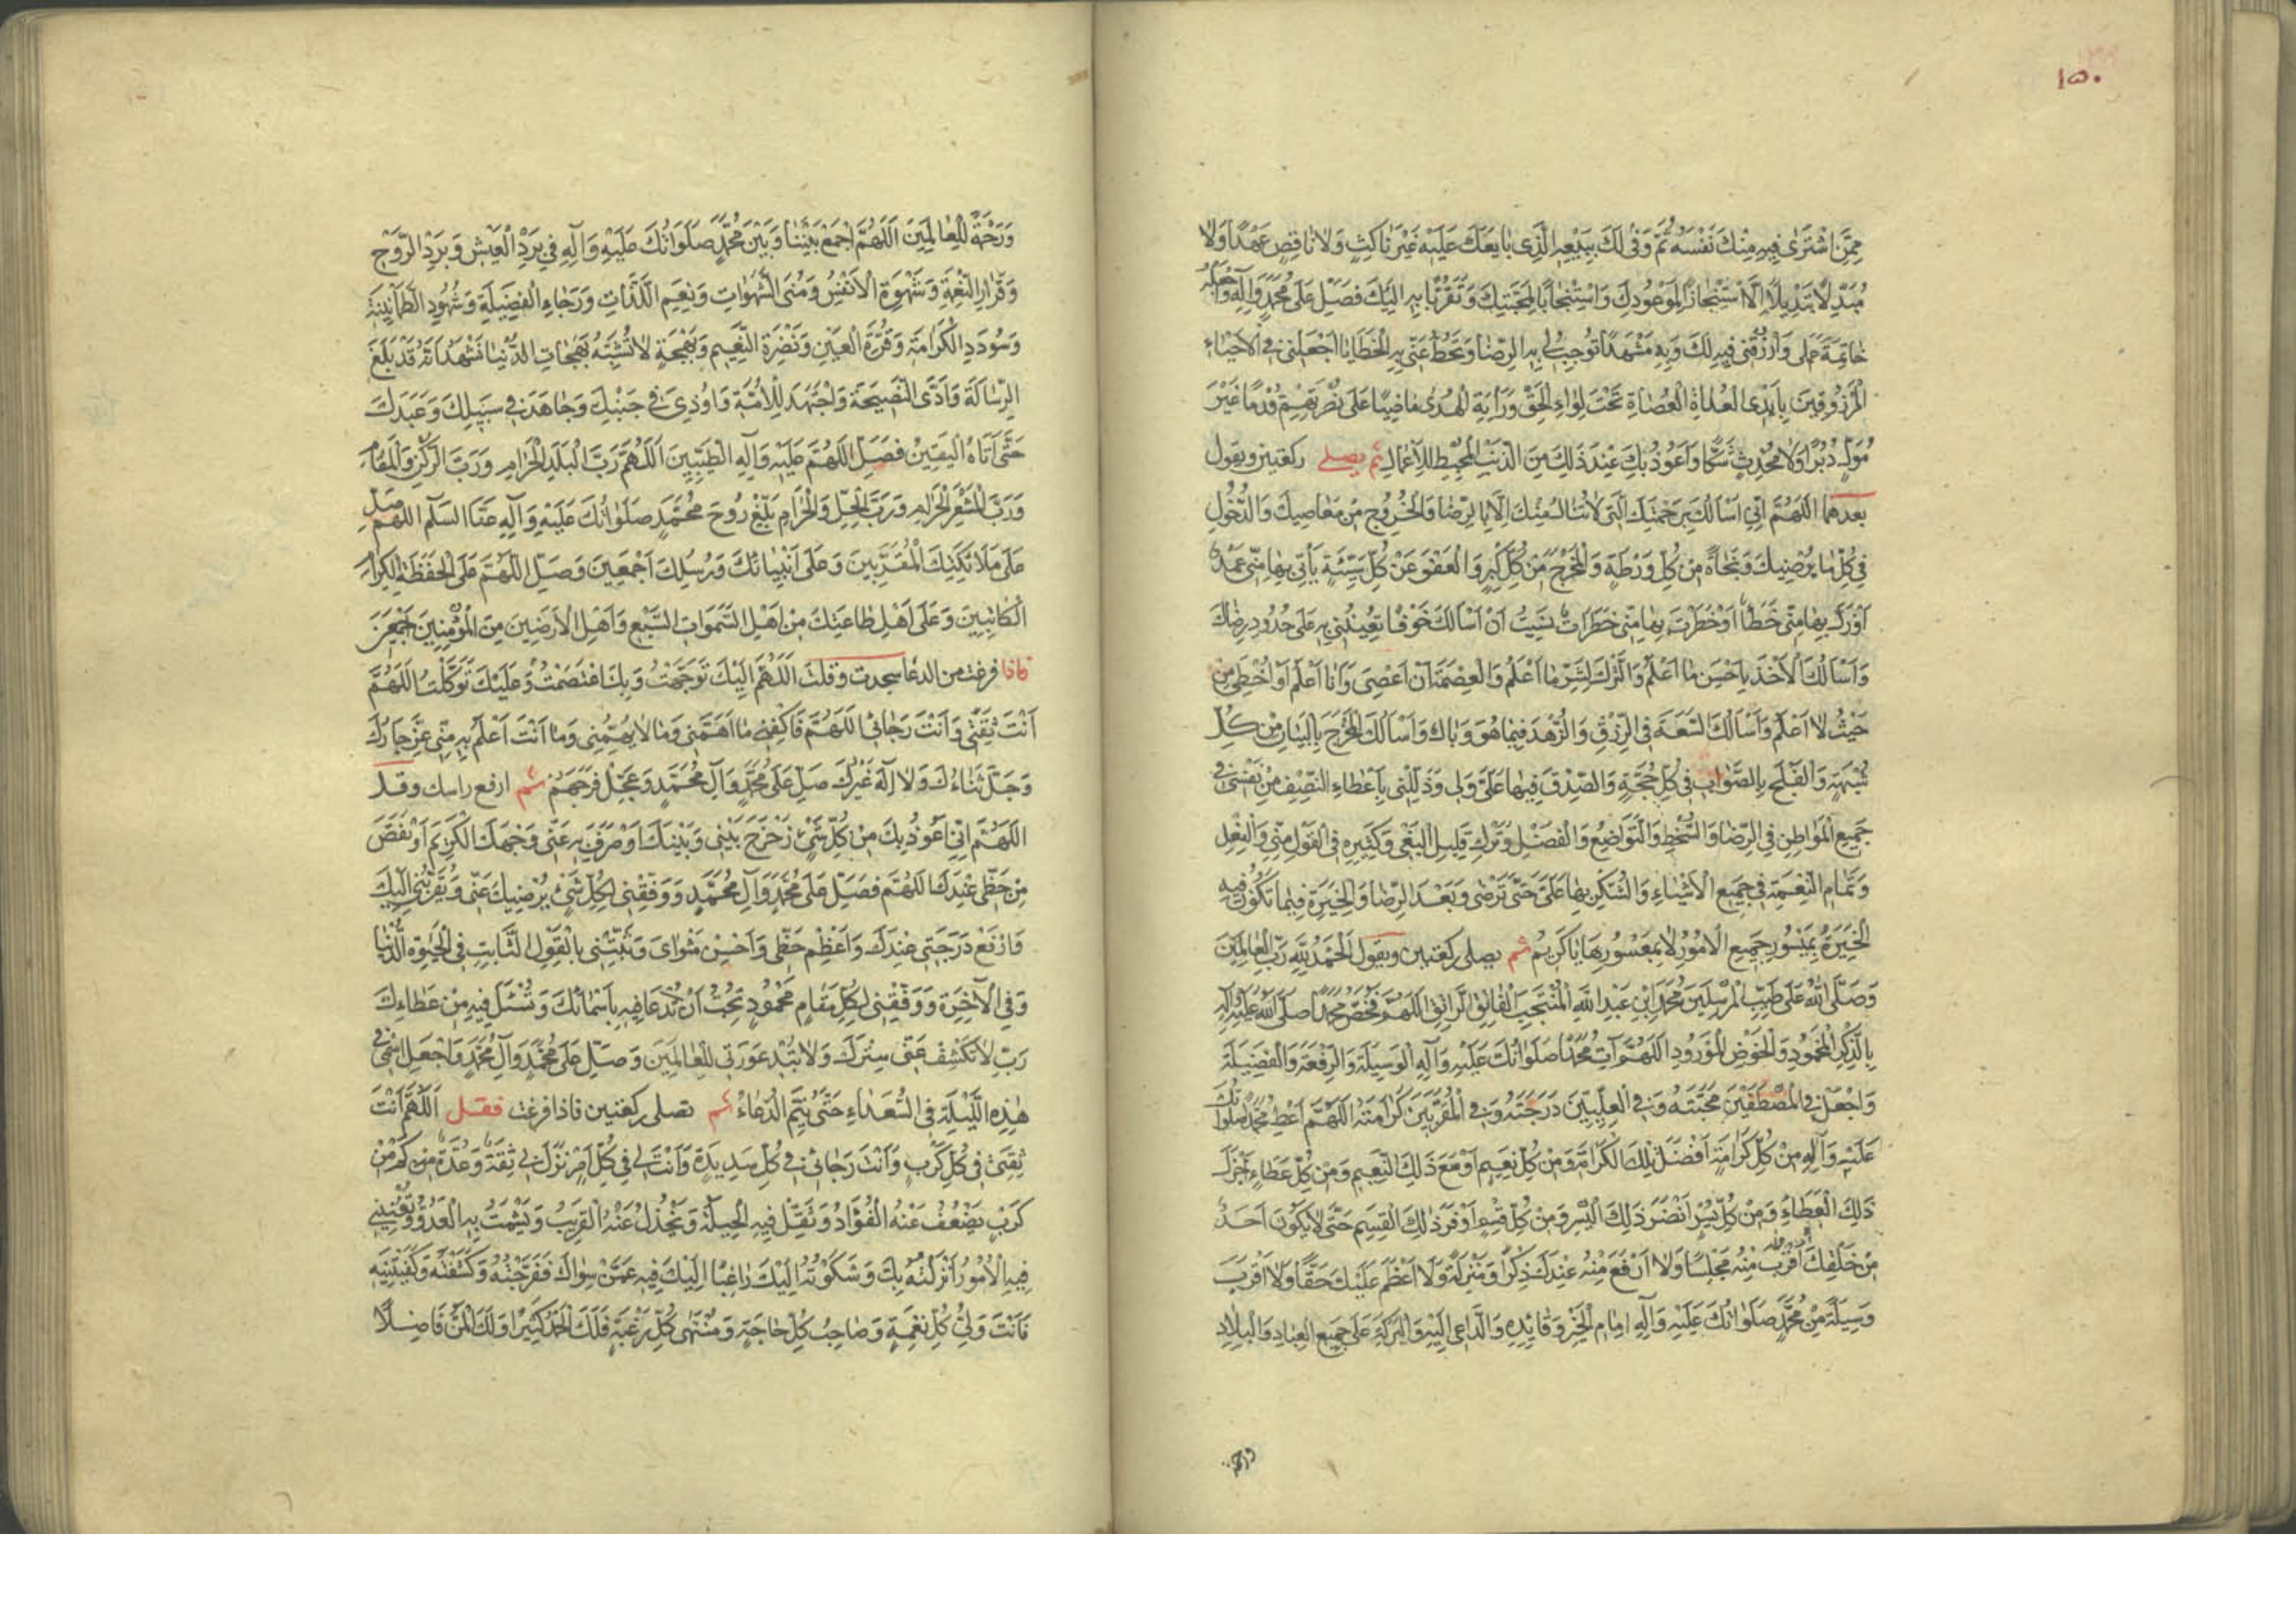 ١٥٠
مِمَّنِ اشْتَرٰى فِيهِ مِنْكَ نَفْسَهُ ثُمَّ وَفٰى لَكَ بِبَيْعِهِ الَّذِى بَايَعَكَ عَلَيْهِ غَيْرَ نَاكِثٍ وَلَا نَاقِصٍ عَهْدًا وَلَا
مُبَدِّلٍ تَبْدِيلًا إِلَّا اسْتِنْجَازًا لِمَوْعُودِكَ وَاسْتِيجَابًا لِمَحَبَّتِكَ وَتَقَرُّبًا بِهِ إِلَيْكَ فَصَلِّ عَلٰى مُحَمَّدٍ وَآلِهِ وَاجْعَلْهُ
خَاتِمَةَ عَمَلِى وَارْزُقْنِى فِيهِ لَكَ وَبِهِ مَشْهَدًا تُوجِبُ لِى بِهِ الرِّضَا وَتَحُطُّ عَنِّى بِهِ الْخَطَايَا اجْعَلْنِى فِى الْأَحْيَاءِ
الْمَرْزُوقِينَ بِأَيْدِى الْعُدَاةِ الْعُصَاةِ تَحْتَ لِوَاءِ الْحَقِّ وَرَايَةِ الْهُدٰى مَاضِيًا عَلٰى نُصْرَتِهِمْ قُدُمًا غَيْرَ
مُوَلٍّ دُبُرًا وَلَا مُحْدِثٍ شَكًّا وَأَعُوذُ بِكَ عِنْدَ ذٰلِكَ مِنَ الذَّنْبِ الْمُحْبِطِ لِلْأَعْمَالِ ثم يصلى ركعتين ويقول
بعدهما اللّٰهُمَّ إِنِّى أَسْأَلُكَ بِرَحْمَتِكَ الَّتِى لَا تُنَالُ مِنْكَ إِلَّا بِالرِّضَا وَالْخُرُوجِ مِنْ مَعَاصِيكَ وَالدُّخُولِ
فِى كُلِّ مَا يُرْضِيكَ وَنَجَاةً مِنْ كُلِّ وَرْطَةٍ وَالْمَخْرَجَ مِنْ كُلِّ كَبِيرٍ وَالْعَفْوَ عَنْ كُلِّ سَيِّئَةٍ يَأْتِى بِهَا مِنِّى عَمْدٌ
أَوْ زَلَّ بِهَا مِنِّى خَطَأٌ أَوْ خَطَرَتْ بِهَا مِنِّى خَطَرَاتٌ نَسِيتُ أَنْ أَسْأَلَكَ خَوْفًا تُعِينُنِى بِهِ عَلٰى حُدُودِ رِضَاكَ
وَأَسْأَلُكَ الْأَخْذَ بِأَحْسَنِ مَا أَعْلَمُ وَالتَّرْكَ لِشَرِّ مَا أَعْلَمُ وَالْعِصْمَةَ أَنْ أَعْصِىَ وَأَنَا أَعْلَمُ أَوْ أُخْطِئَ مِنْ
حَيْثُ لَا أَعْلَمُ وَأَسْأَلُكَ السَّعَةَ فِى الرِّزْقِ وَالزُّهْدَ فِيمَا هُوَ وَبَالٌ وَأَسْأَلُكَ الْمَخْرَجَ بِالْبَيَانِ مِنْ كُلِّ
شُبْهَةٍ وَالْفَلْجَ بِالصَّوَابِ فِى كُلِّ حُجَّةٍ وَالصِّدْقَ فِيمَا عَلَىَّ وَلِى وَذَلِّلْنِى بِإِعْطَاءِ النَّصَفِ مِنْ نَفْسِى فِى
جَمِيعِ الْمَوَاطِنِ فِى الرِّضَا وَالسَّخَطِ وَالتَّوَاضُعِ وَالْفَضْلِ وَتَرْكِ قَلِيلِ الْبَغْىِ وَكَثِيرِهِ فِى الْقَوْلِ مِنِّى وَالْفِعْلِ
وَتَمَامَ النِّعْمَةِ فِى جَمِيعِ الْأَشْيَاءِ وَالشُّكْرَ بِهَا عَلَىَّ حَتّٰى تَرْضٰى وَبَعْدَ الرِّضَا وَالْخِيَرَةَ فِيمَا تَكُونُ فِيهِ
الْخِيَرَةُ بِمَيْسُورِ جَمِيعِ الْأُمُورِ لَا بِمَعْسُورِهَا يَا كَرِيمُ ثم يصلى ركعتين ويقول الْحَمْدُ لِلّٰهِ رَبِّ الْعَالَمِينَ
وَصَلَّى اللّٰهُ عَلٰى طَيِّبِ الْمُرْسَلِينَ مُحَمَّدِ ابْنِ عَبْدِ اللّٰهِ الْمُنْتَجَبِ الْفَاتِقِ الرَّاتِقِ اللّٰهُمَّ فَخُصَّ مُحَمَّدًا صَلَّى اللّٰهُ عَلَيْهِ وَآلِهِ
بِالذِّكْرِ الْمَحْمُودِ وَالْحَوْضِ الْمَوْرُودِ اللّٰهُمَّ آتِ مُحَمَّدًا صَلَوَاتُكَ عَلَيْهِ وَآلِهِ الْوَسِيلَةَ وَالرِّفْعَةَ وَالْفَضِيلَةَ
وَاجْعَلْ فِى الْمُصْطَفَيْنَ مَحَبَّتَهُ وَفِى الْعِلِّيِّينَ دَرَجَتَهُ وَفِى الْمُقَرَّبِينَ كَرَامَتَهُ اللّٰهُمَّ أَعْطِ مُحَمَّدًا صَلَوَاتُكَ
عَلَيْهِ وَآلِهِ مِنْ كُلِّ كَرَامَةٍ أَفْضَلَ تِلْكَ الْكَرَامَةِ وَمِنْ كُلِّ نَعِيمٍ أَوْسَعَ ذٰلِكَ النَّعِيمِ وَمِنْ كُلِّ عَطَاءٍ أَجْزَلَ
ذٰلِكَ الْعَطَاءِ وَمِنْ كُلِّ يُسْرٍ أَنْضَرَ ذٰلِكَ الْيُسْرِ وَمِنْ كُلِّ قِسْمٍ أَوْفَرَ ذٰلِكَ الْقِسْمِ حَتّٰى لَا يَكُونَ أَحَدٌ
مِنْ خَلْقِكَ أَقْرَبَ مِنْهُ مَجْلِسًا وَلَا أَرْفَعَ مِنْهُ عِنْدَكَ ذِكْرًا وَمَنْزِلَةً وَلَا أَعْظَمَ عَلَيْكَ حَقًّا وَلَا أَقْرَبَ
وَسِيلَةً مِنْ مُحَمَّدٍ صَلَوَاتُكَ عَلَيْهِ وَآلِهِ إِمَامِ الْخَيْرِ وَقَائِدِهِ وَالدَّاعِى إِلَيْهِ وَالْبَرَكَةِ عَلٰى جَمِيعِ الْعِبَادِ وَالْبِلَادِ
وَرَحْمَةً لِلْعَالَمِينَ اللّٰهُمَّ اجْمَعْ بَيْنَنَا وَبَيْنَ مُحَمَّدٍ صَلَوَاتُكَ عَلَيْهِ وَآلِهِ فِى بَرْدِ الْعَيْشِ وَبَرْدِ الرَّوْحِ
وَقَرَارِ النِّعْمَةِ وَشَهْوَةِ الْأَنْفُسِ وَمُنَى الشَّهَوَاتِ وَنَعِيمِ اللَّذَّاتِ وَرَجَاءِ الْفَضِيلَةِ وَشُهُودِ الطُّمَأْنِينَةِ
وَسُودَدِ الْكَرَامَةِ وَقُرَّةِ الْعَيْنِ وَنَضْرَةِ النَّعِيمِ وَبَهْجَةٍ لَا تُشْبِهُ بَهَجَاتِ الدُّنْيَا نَشْهَدُ أَنَّهُ قَدْ بَلَّغَ
الرِّسَالَةَ وَأَدَّى النَّصِيحَةَ وَاجْتَهَدَ لِلْأُمَّةِ وَأُوذِىَ فِى جَنْبِكَ وَجَاهَدَ فِى سَبِيلِكَ وَعَبَدَكَ
حَتّٰى أَتَاهُ الْيَقِينُ فَصَلِّ اللّٰهُمَّ عَلَيْهِ وَآلِهِ الطَّيِّبِينَ اللّٰهُمَّ رَبَّ الْبَلَدِ الْحَرَامِ وَرَبَّ الرُّكْنِ وَالْمَقَامِ
وَرَبَّ الْمَشْعَرِ الْحَرَامِ وَرَبَّ الْحِلِّ وَالْحَرَامِ بَلِّغْ رُوحَ مُحَمَّدٍ صَلَوَاتُكَ عَلَيْهِ وَآلِهِ عَنَّا السَّلَامَ اللّٰهُمَّ صَلِّ
عَلٰى مَلَائِكَتِكَ الْمُقَرَّبِينَ وَعَلٰى أَنْبِيَائِكَ وَرُسُلِكَ أَجْمَعِينَ وَصَلِّ اللّٰهُمَّ عَلَى الْحَفَظَةِ الْكِرَامِ
الْكَاتِبِينَ وَعَلٰى أَهْلِ طَاعَتِكَ مِنْ أَهْلِ السَّمٰوَاتِ السَّبْعِ وَأَهْلِ الْأَرَضِينَ مِنَ الْمُؤْمِنِينَ أَجْمَعِينَ
فاذا فرغت من الدعا سجدت وقلت اللّٰهُمَّ إِلَيْكَ تَوَجَّهْتُ وَبِكَ اعْتَصَمْتُ وَعَلَيْكَ تَوَكَّلْتُ اللّٰهُمَّ
أَنْتَ ثِقَتِى وَأَنْتَ رَجَائِى اللّٰهُمَّ فَاكْفِنِى مَا أَهَمَّنِى وَمَا لَا يُهِمُّنِى وَمَا أَنْتَ أَعْلَمُ بِهِ مِنِّى عَزَّ جَارُكَ
وَجَلَّ ثَنَاءُكَ وَلَا إِلٰهَ غَيْرُكَ صَلِّ عَلٰى مُحَمَّدٍ وَآلِ مُحَمَّدٍ وَعَجِّلْ فَرَجَهُمْ ثم ارفع راسك وقل
اللّٰهُمَّ إِنِّى أَعُوذُ بِكَ مِنْ كُلِّ شَىْءٍ زَحْزَحَ بَيْنِى وَبَيْنَكَ أَوْ صَرَفَ بِهِ عَنِّى وَجْهَكَ الْكَرِيمَ أَوْ نَقَصَ
مِنْ حَظِّى عِنْدَكَ اللّٰهُمَّ فَصَلِّ عَلٰى مُحَمَّدٍ وَآلِ مُحَمَّدٍ وَوَفِّقْنِى لِكُلِّ شَىْءٍ يُرْضِيكَ عَنِّى وَيُقَرِّبُنِى إِلَيْكَ
وَارْفَعْ دَرَجَتِى عِنْدَكَ وَأَعْظِمْ حَظِّى وَأَحْسِنْ مَثْوَاىَ وَثَبِّتْنِى بِالْقَوْلِ الثَّابِتِ فِى الْحَيٰوةِ الدُّنْيَا
وَفِى الْآخِرَةِ وَوَفِّقْنِى لِكُلِّ مَقَامٍ مَحْمُودٍ تُحِبُّ أَنْ تُدْعَا فِيهِ بِأَسْمَائِكَ وَتُسْئَلَ فِيهِ مِنْ عَطَاءِكَ
رَبِّ لَا تَكْشِفْ عَنِّى سِتْرَكَ وَلَا تُبْدِ عَوْرَتِى لِلْعَالَمِينَ وَصَلِّ عَلٰى مُحَمَّدٍ وَآلِ مُحَمَّدٍ وَاجْعَلِ اسْمِى فِى
هٰذِهِ اللَّيْلَةِ فِى السُّعَدَاءِ حَتّٰى يُتِمَّ الدُّعَاءَ ثم تصلى ركعتين فاذا فرغت فقل اللّٰهُمَّ أَنْتَ
ثِقَتِى فِى كُلِّ كَرْبٍ وَأَنْتَ رَجَائِى فِى كُلِّ شَدِيدَةٍ وَأَنْتَ لِى فِى كُلِّ أَمْرٍ نَزَلَ بِى ثِقَةٌ وَعُدَّةٌ كَمْ مِنْ
كَرْبٍ يَضْعُفُ عَنْهُ الْفُؤَادُ وَتَقِلُّ فِيهِ الْحِيلَةُ وَيَخْذُلُ عَنْهُ الْقَرِيبُ وَيَشْمَتُ بِهِ الْعَدُوُّ وَتُعْيِينِى
فِيهِ الْأُمُورُ أَنْزَلْتُهُ بِكَ وَشَكَوْتُهُ إِلَيْكَ رَاغِبًا إِلَيْكَ فِيهِ عَمَّنْ سِوَاكَ فَفَرَّجْتَهُ وَكَشَفْتَهُ وَكَفَيْتَنِيهِ
فَأَنْتَ وَلِىُّ كُلِّ نِعْمَةٍ وَصَاحِبُ كُلِّ حَاجَةٍ وَمُنْتَهٰى كُلِّ رَغْبَةٍ فَلَكَ الْحَمْدُ كَثِيرًا وَلَكَ الْمَنُّ فَاضِلًا